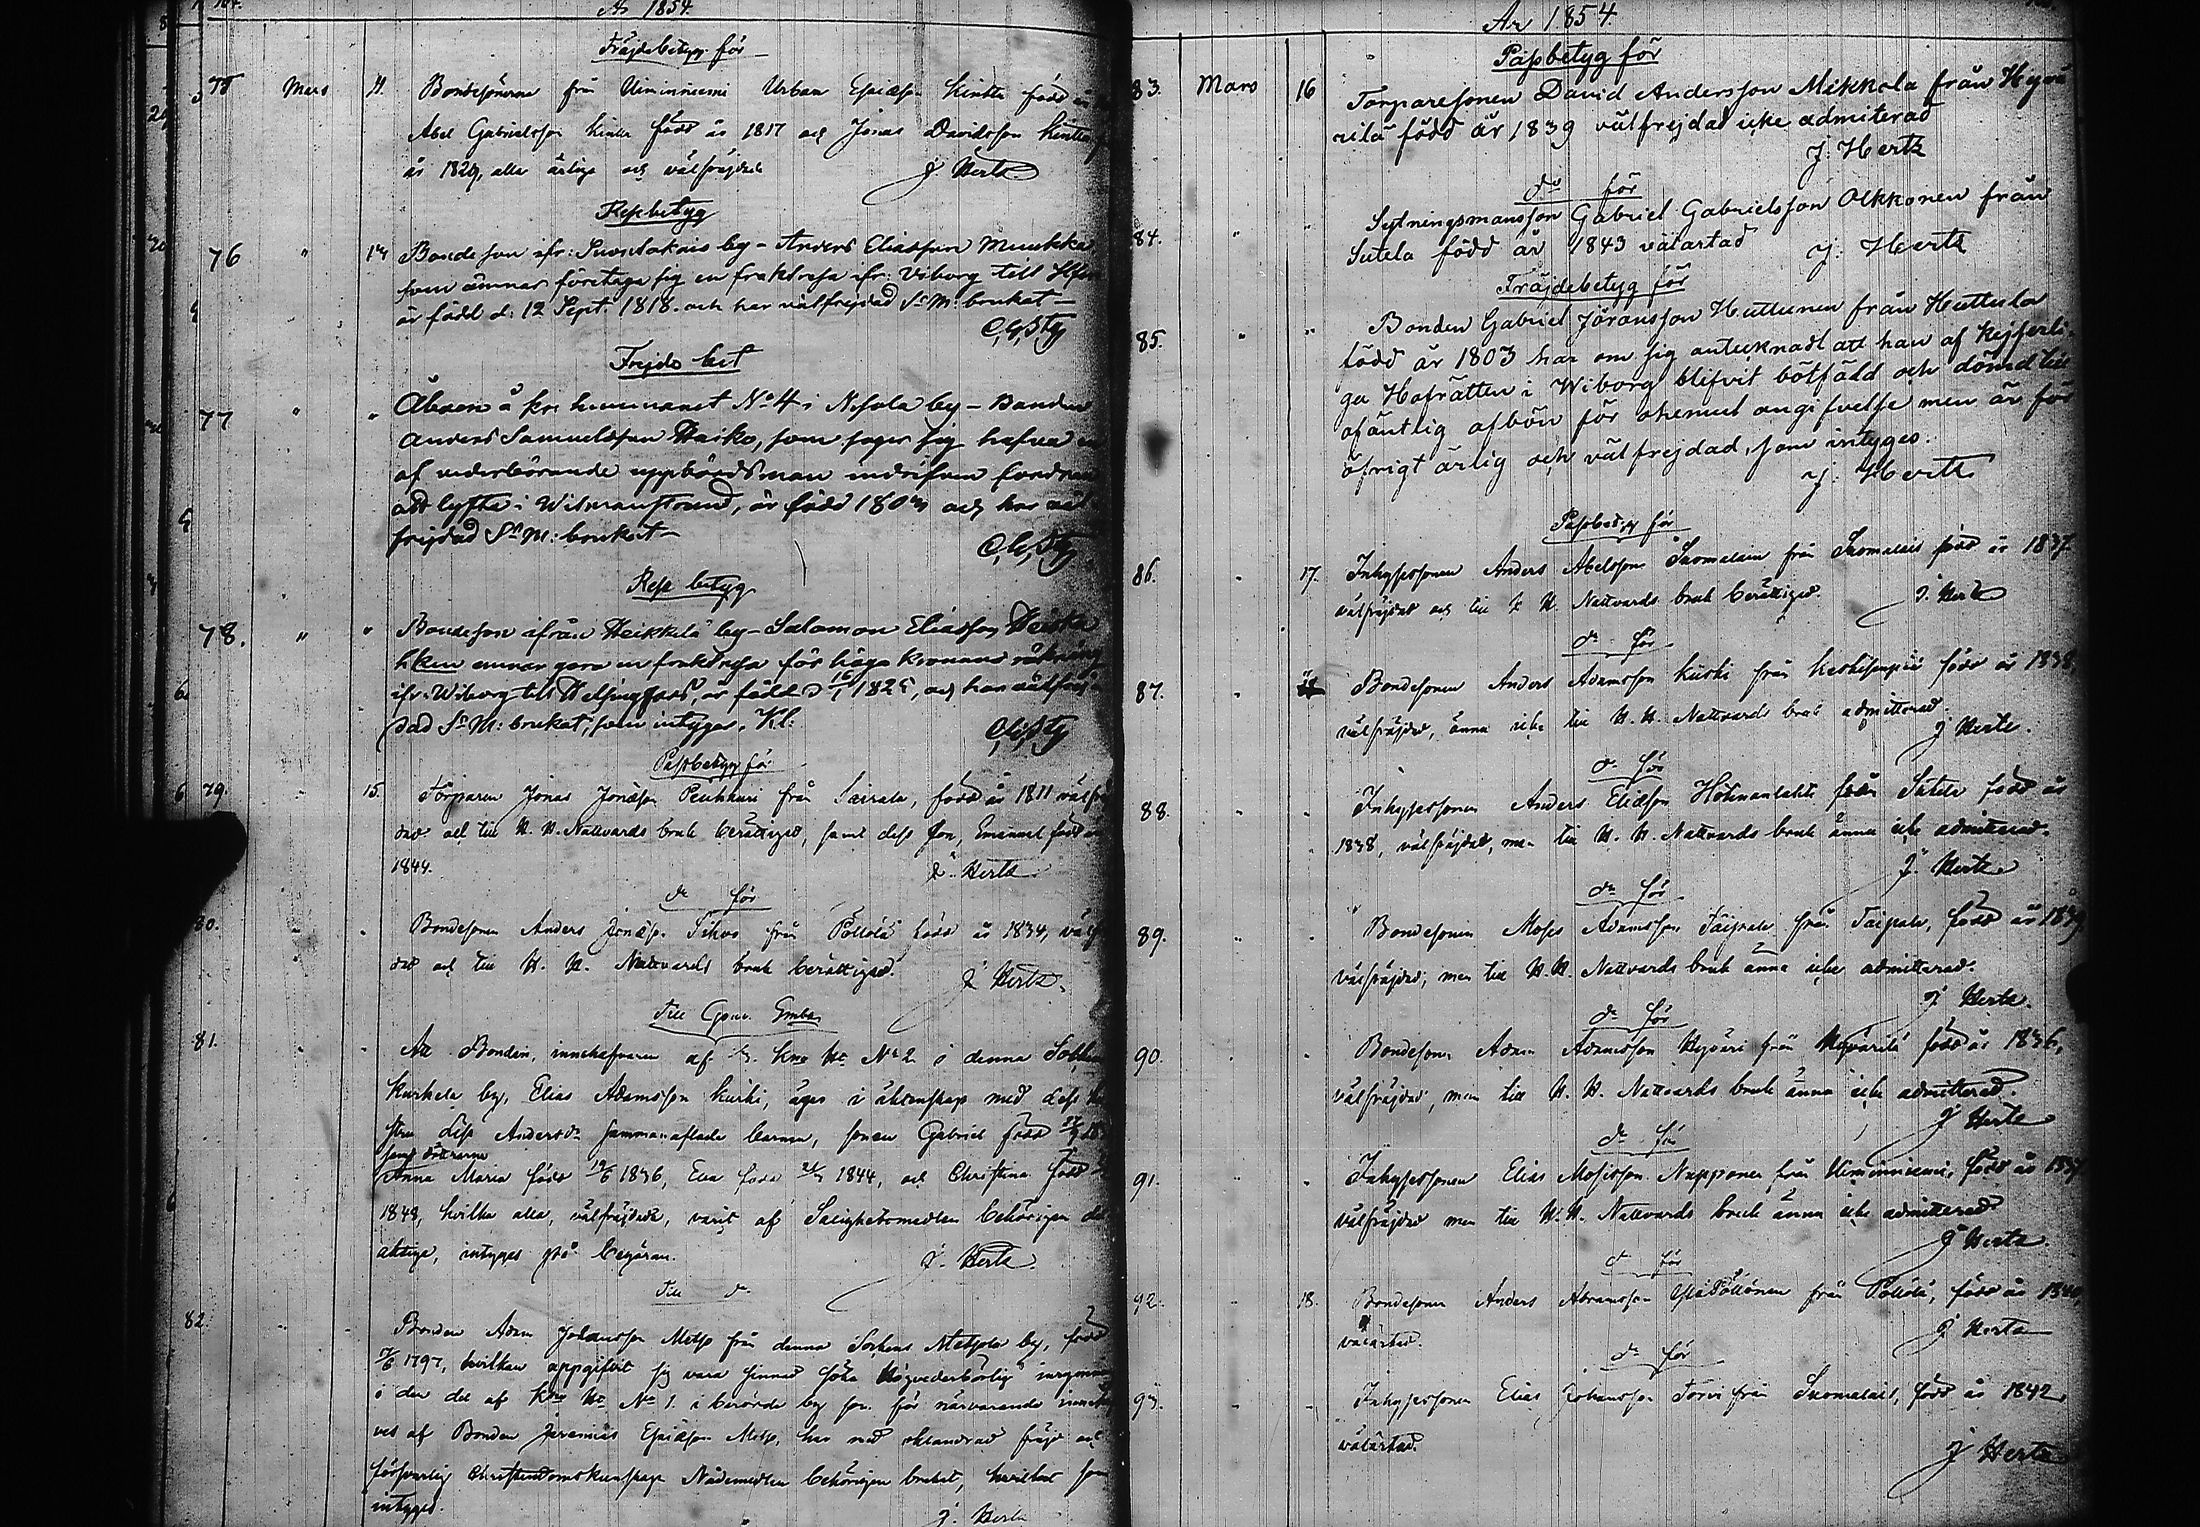 År 1854.
Fräjdebetyg för
75 Mars 11. Bondesönerna från Niminniemi Urban Esaiæson Kinttu född år
Abel Gabrielsson Kinttu född år 1817 och Jonas Davidsson Kinttu
år 1829, alla ärlige och välfräjdade
J. Hertz
Resebetyg
76 " 14 Bondeson ifr: Suontakais by – Anders Eliasson Muukka
som ämnar företaga sig en fraktresa ifr: Viborg till
är född d: 12 Sept: 1818. och har välfrejdad S: M: brukat –
Frejde bet
77 " " Åboen å kro hemmanet No 4 i by – Bonden
Anders Samuelsson Haiko, som säger sig hafva
af vederbörande uppbördsman fordran
att lyfta i Wilmanstrand, är född 180 och har väl-
frejdad S: M: brukat –
Rese betyg
78. " " Bondeson ifrån Heikkilä by – Salomon Eliasson
hken ämnar göra en fraktresa för höga Kronans räkning
ifr: Wiborg till Helsingfors, är född d 182 och har välfrej-
dad S: M: brukat, som intygar, Kl:
Passbetyg för
79. 15. Torparen Jonas Jonæson Peuhkuri från Sairala, född år 1811 välfräj
dad och till H. H. Nattvards bruk berättigad, samt dess son, Emanuel född år
1844.
J. Hertz
do för
80. Bondesonen Anders Jonæson Sihvo från Pöllölä född år 1834, välfr
dad och till H. H. Nattvards bruk berättigad.
J Hertz.
Till Gouv. Emb
81. Att Bonden, innehafvaren af Kro He No 2 i denna Sokn
Kurkela by, Elias Adamsson Kurki, äger i äktenskap med dess hu
stru Lisa Andersdr sammanaflade barnen, sonen Gabriel född
samt döttrarna
Anna Maria född 19/6 1836, Eva född 1844, och Christina född
1848, hvilka alla, välfräjdade, varit af Salighetsmedlen behörigen del
aktige, intygas på begäran.
J. Hertz.
Till do
82. Bonden Adam Johansson Metso från denna Sockens Metsola by, född
1797, hvilken uppgifvit sig vara sinnad söka Högvederbörlig
i den del af Kro He No 1. i berörde by som för närvarande inneha
ves af Bonden Jeremias Esaiæson Metso, har med oklandrad fräjd och
försvarlig Christendomskunskap Nådemedlen behörigen brukat, hvilket som
intygas.
J. Hertz
År 1854
Passbetyg för
83. Mars 16 Torparesonen David Andersson Mikkola från Hyvä
rilä född år 1839 välfrejdad icke admiterad
J. Hertz
do för
84. " " Sytningsmansson Gabriel Gabrielsson Olkkonen från
Sutela född år 1843 välartad
J. Hertz
Fräjdebetyg för
85. " " Bonden Gabriel Jöransson Huttunen från Huttula
född år 1803 har om sig antecknadt att han af Kejserli-
ga Hofrätten i Wiborg blifvit botfäld och dömd till
ofäntlig afbön för ohemul angifvelse men är för
öfrigt ärlig och välfrejdad, som intygas.
J. Hertz
Passbetyg för
86. 17. Inhysessonen Anders Abelsson Suomalain från Suomalais född år 1837
välfräjdad och till H. H. Nattvards bruk berättigad.
J. Hertz
do för
87. Bondesonen Anders Adamsson Kurki från född år 1838
välfräjdad, ännu icke till H. H. Nattvards bruk admitterad.
J Hertz.
do för
88. Inhysessonen Anders Eliæson från Sutela född år
1838, välfräjdad, men till H. H. Nattvards bruk ännu icke admitterad.
J. Hertz
do för
89. Bondesonen Moses Adamsson Taipale från Taipale, född år 1839
välfräjdad, men till H. H. Nattvards bruk ännu icke admitterad.
J Hertz.
do för
90. Bondesonen Adam Adamsson Hyväri från Hyvärilä född år 1836,
välfräjdad, men till H. H. Nattvards bruk ännu icke admitterad.
J Hertz
do för
91. Inhysessonen Elias Mosisson Nupponen från Niminniemi, född år 1837
välfräjdad men till H. H. Nattvards bruk ännu icke admitterad
J Hertz
do för
92. 18. Bondesonen Anders Abramsson Yläpöllönen från Pöllölä, född år 1840,
välartad.
J Hertz
do för
93. Inhysessonen Elias Johansson Torvi från Suomalais, född år 1842,
välartad.
J Hertz